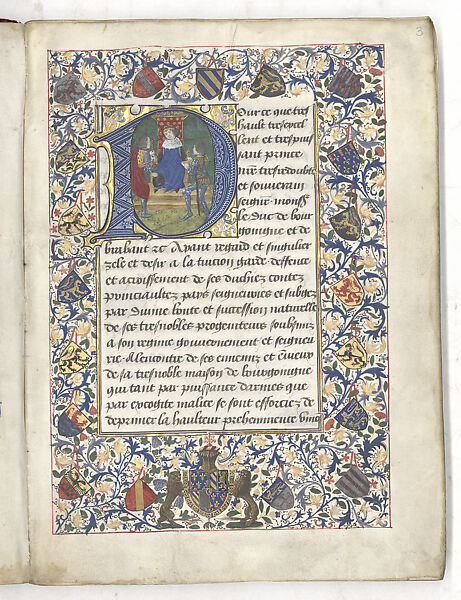 3
Pour ce que tres
hault tresexcel
lent et trespuis
sant prince
nre tresredoubte
et souverain
seignr monsr
le Duc de bour
gomgne et de
brabant &c Ayant regard et singulier
zele et desir a la tuicion garde deffence
et acroissement de ses duchiez contez
principaultez pays seignouries et subgez
par divine bonte et succession naturelle
de ses tresnobles progeniteurs soubzmiz
a son regime gouvernement et seigneu
rie Alencontre de ses ennemiz et envieux
de sa tresnoble maison de bourgoingne
qui tant par puissance darmes que
par excogite malice se sont efforciez de
deprimer la haulteur preheminence